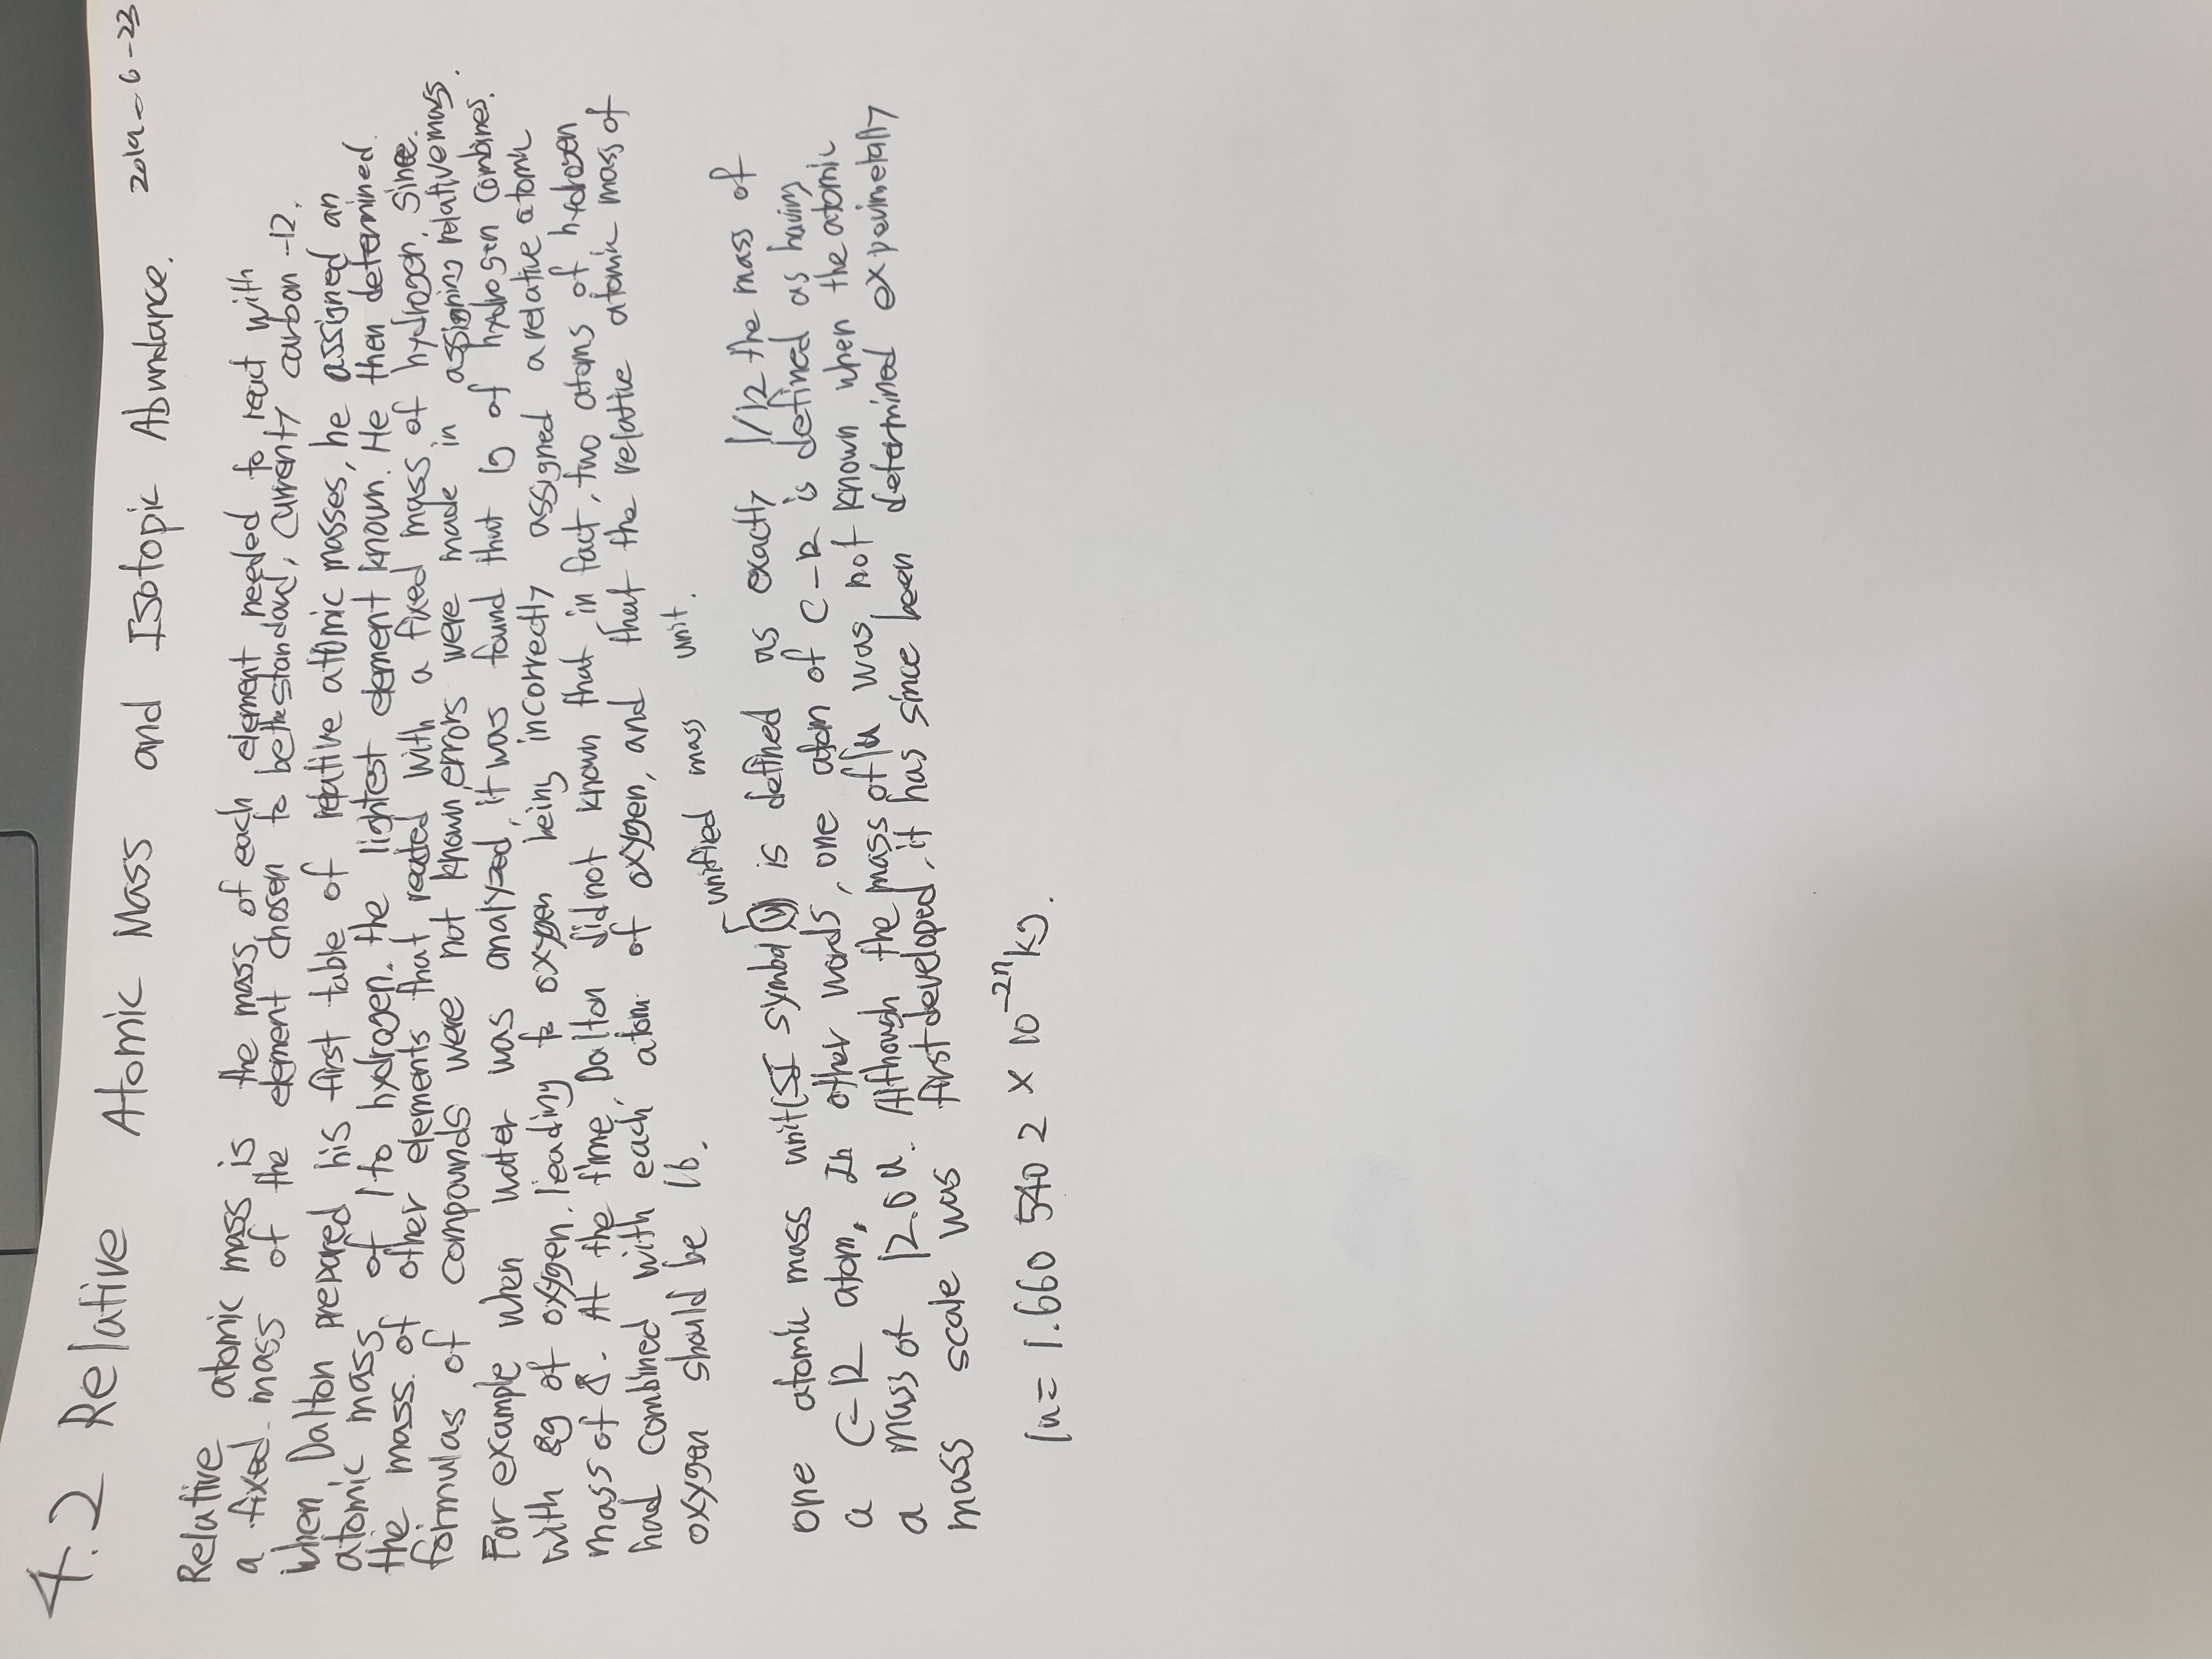 4.2 Relative Atomic Mass and Isotopic Abundance. 2019-6-23
Relative atomic mass is the mass of each element needed to react with
a fixed mass of the element chosen to be the standard, currently carbon-12.
when Dalton prepared his first table of relative atomic masses, he assigned an
atomic mass of 1 to hydrogen. the lightest element known. He then determined
the mass of other elements that reacted with a fixed mass of hydrogen. Since
formulas of compounds were not known, errors were made in assigning relative mass.
For example when water was analyzed, it was found that 1g of hydrogen combines.
with 8g of oxygen. leading to oxygen being incorrectly assigned a relative atomic
mass of 8. At the time, Dalton did not known that in fact, two atoms of hydrogen
had combined with each atom of oxygen, and that the relative atomic mass of
oxygen should be 16.
unified mass unit.
one atomic mass unit (SI symbol u) is defined as exactly 1/12 the mass of
a C-12 atom, In other words, one atom of C-12 is defined as having
a mass of 12.0 u. Although the mass of 1u was not known when the atomic
mass scale was first developed, it has since been determined expirimetally
1u = 1.660 540 2 × 10⁻²⁷ kg.